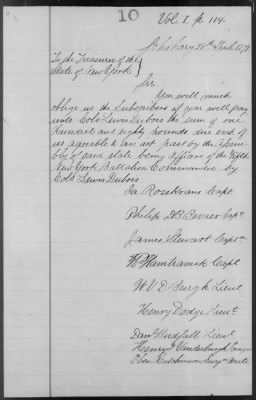 10
Vol. I. p. 114.
28th April 1779
To the Treasurer of the
State of New York
Sir
You will much
oblige us the Subscribers if you will pay
unto Colo Lewis Dubois the sum of one
Hundred and eighty pounds due each of
us agreeable to an act past by the Assem-
bly of said state being officers of the Fifth
New York Battalion Commanded by
Colo Lewis Dubois
Ja Rosekrans Capt
Philip DBevier Capt
James Stewart Captn
H Hambramck Capt
H V D Burgh Lieut
Henry Dodge Lieut
Danl Birdsall Lieut
Henry Vanderburgh Ensign
Eben Hutchinson Surgn Mate